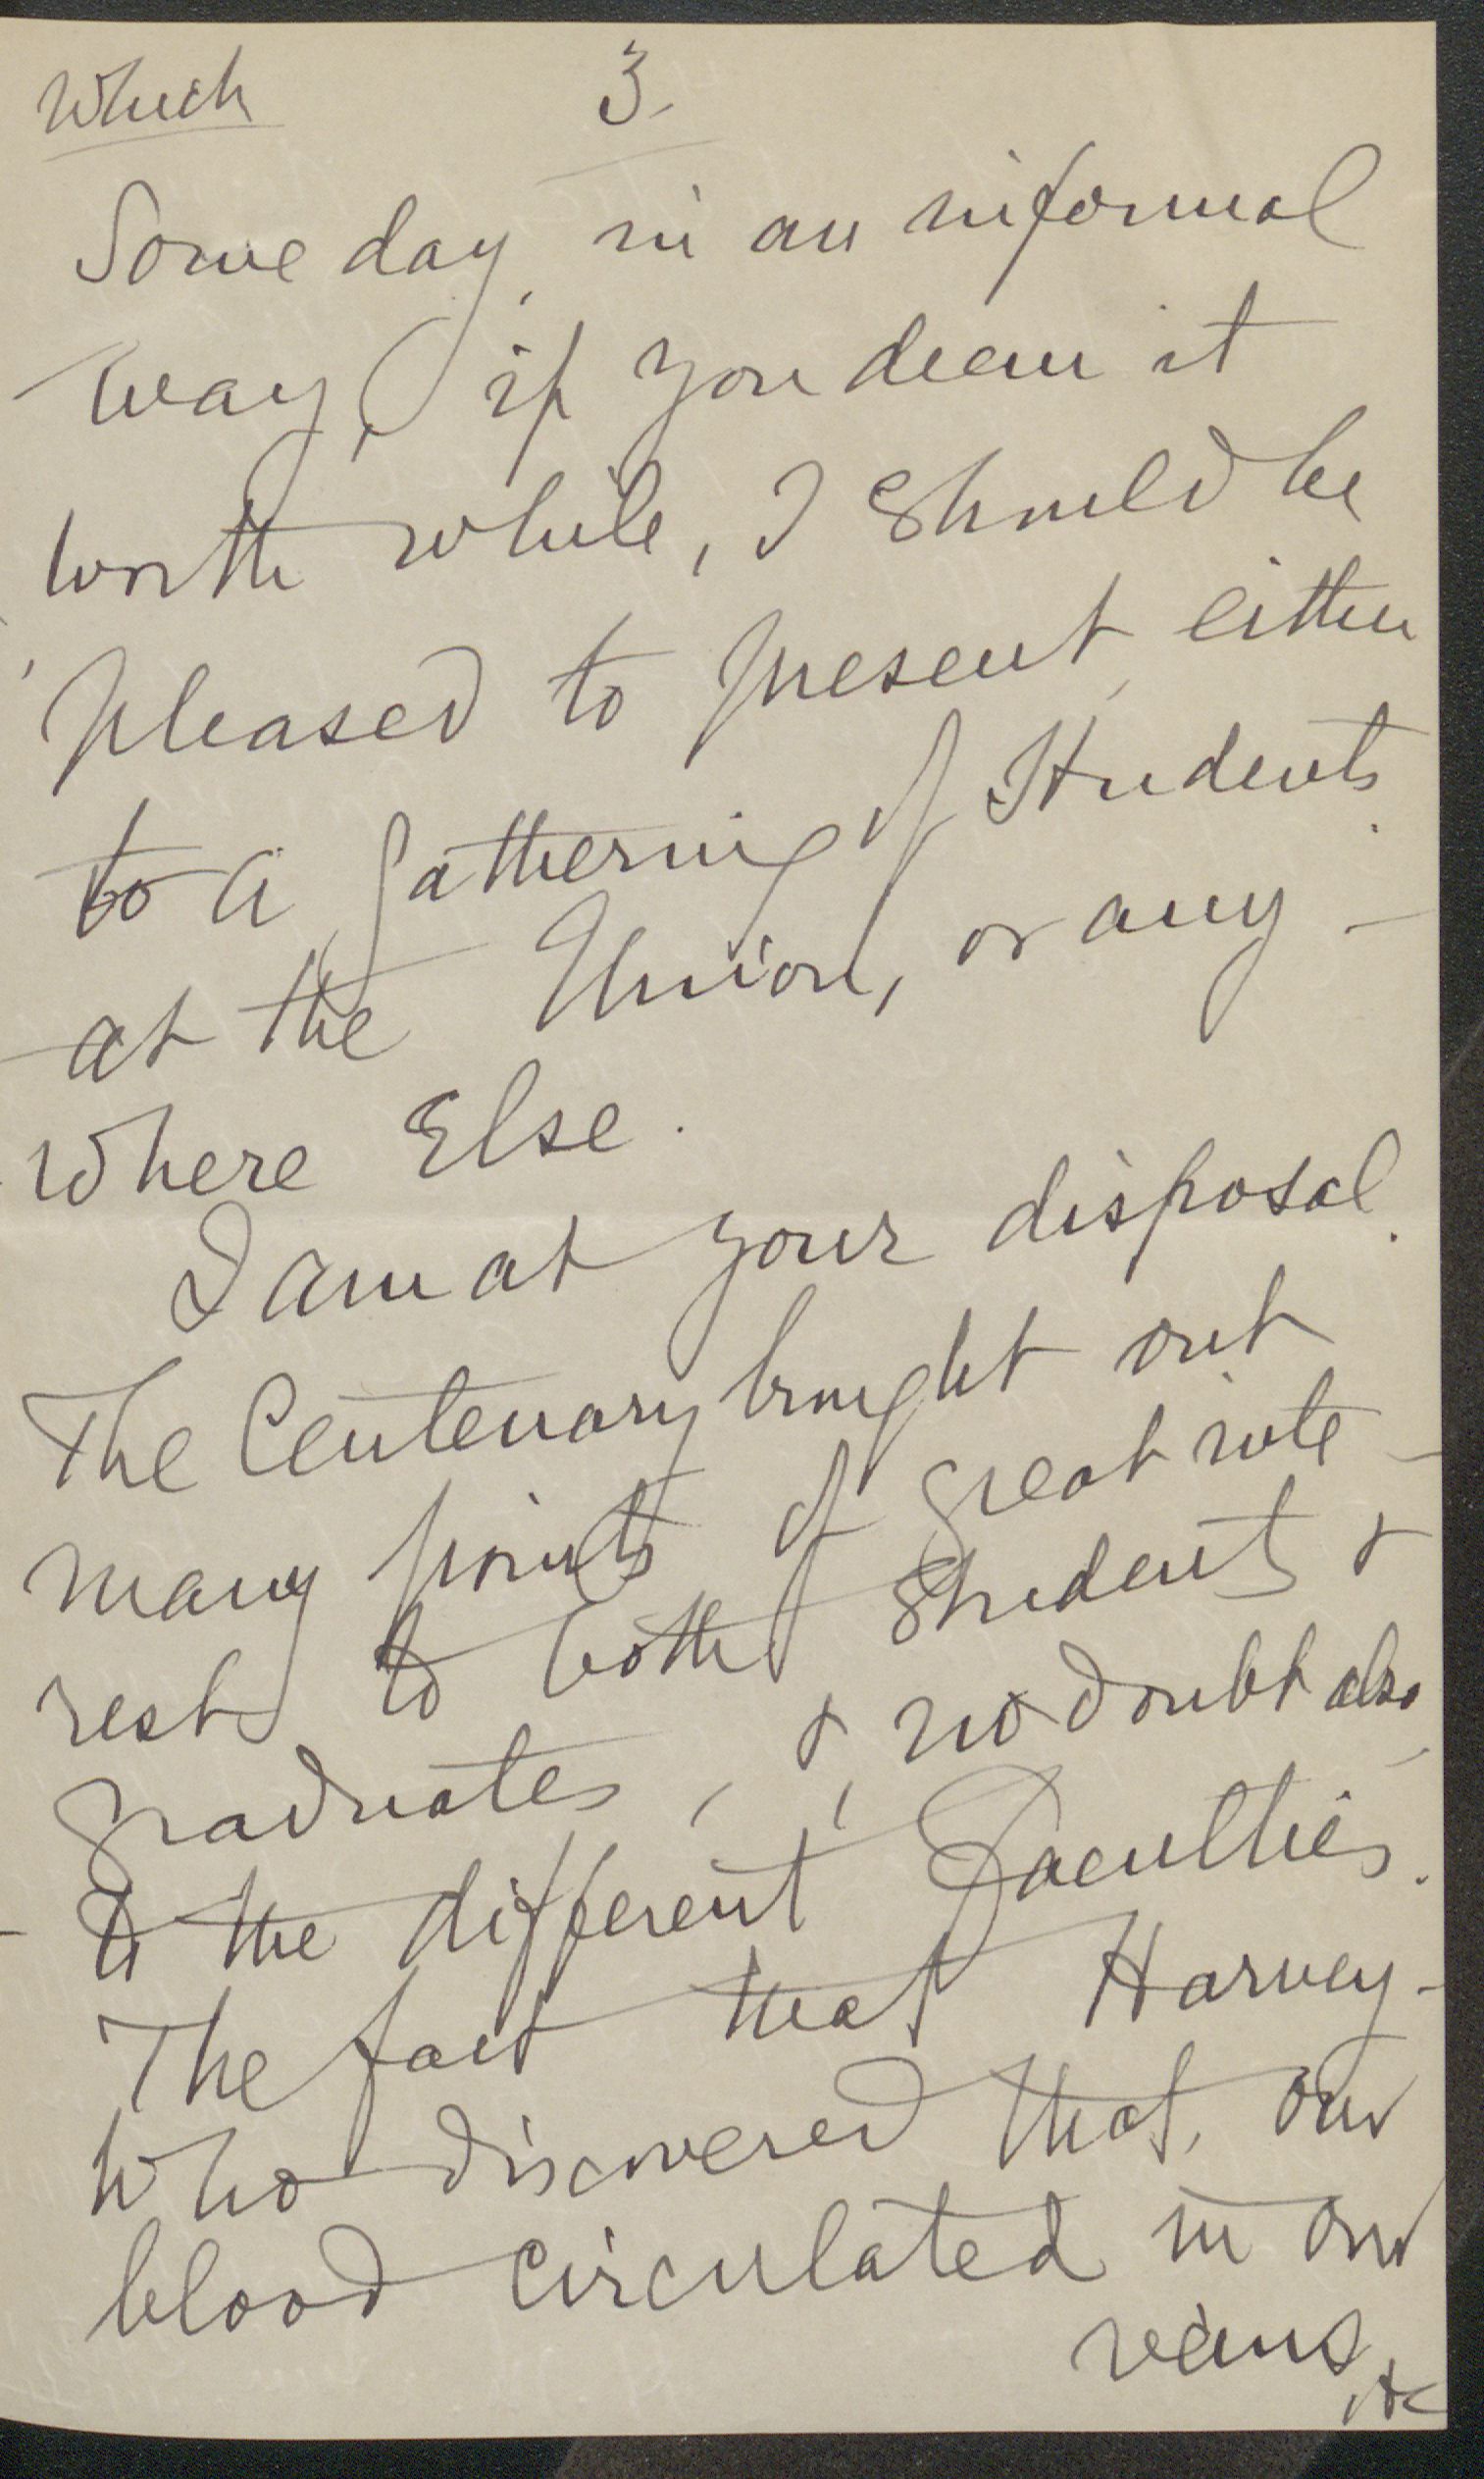 Which 3.
Some day, in an informal
way, if you deem it
worth while, I should be
pleased to present, either
to a gathering of Students
at the Union, or any-
where Else.
I am at your disposal.
The Centenary brought out
many points of great inte-
rest to both student &
graduates, & no doubt also,
to the different Faculties.
The fact that Harvey-
who discovered that, our
blood circulated in our
veins, &c